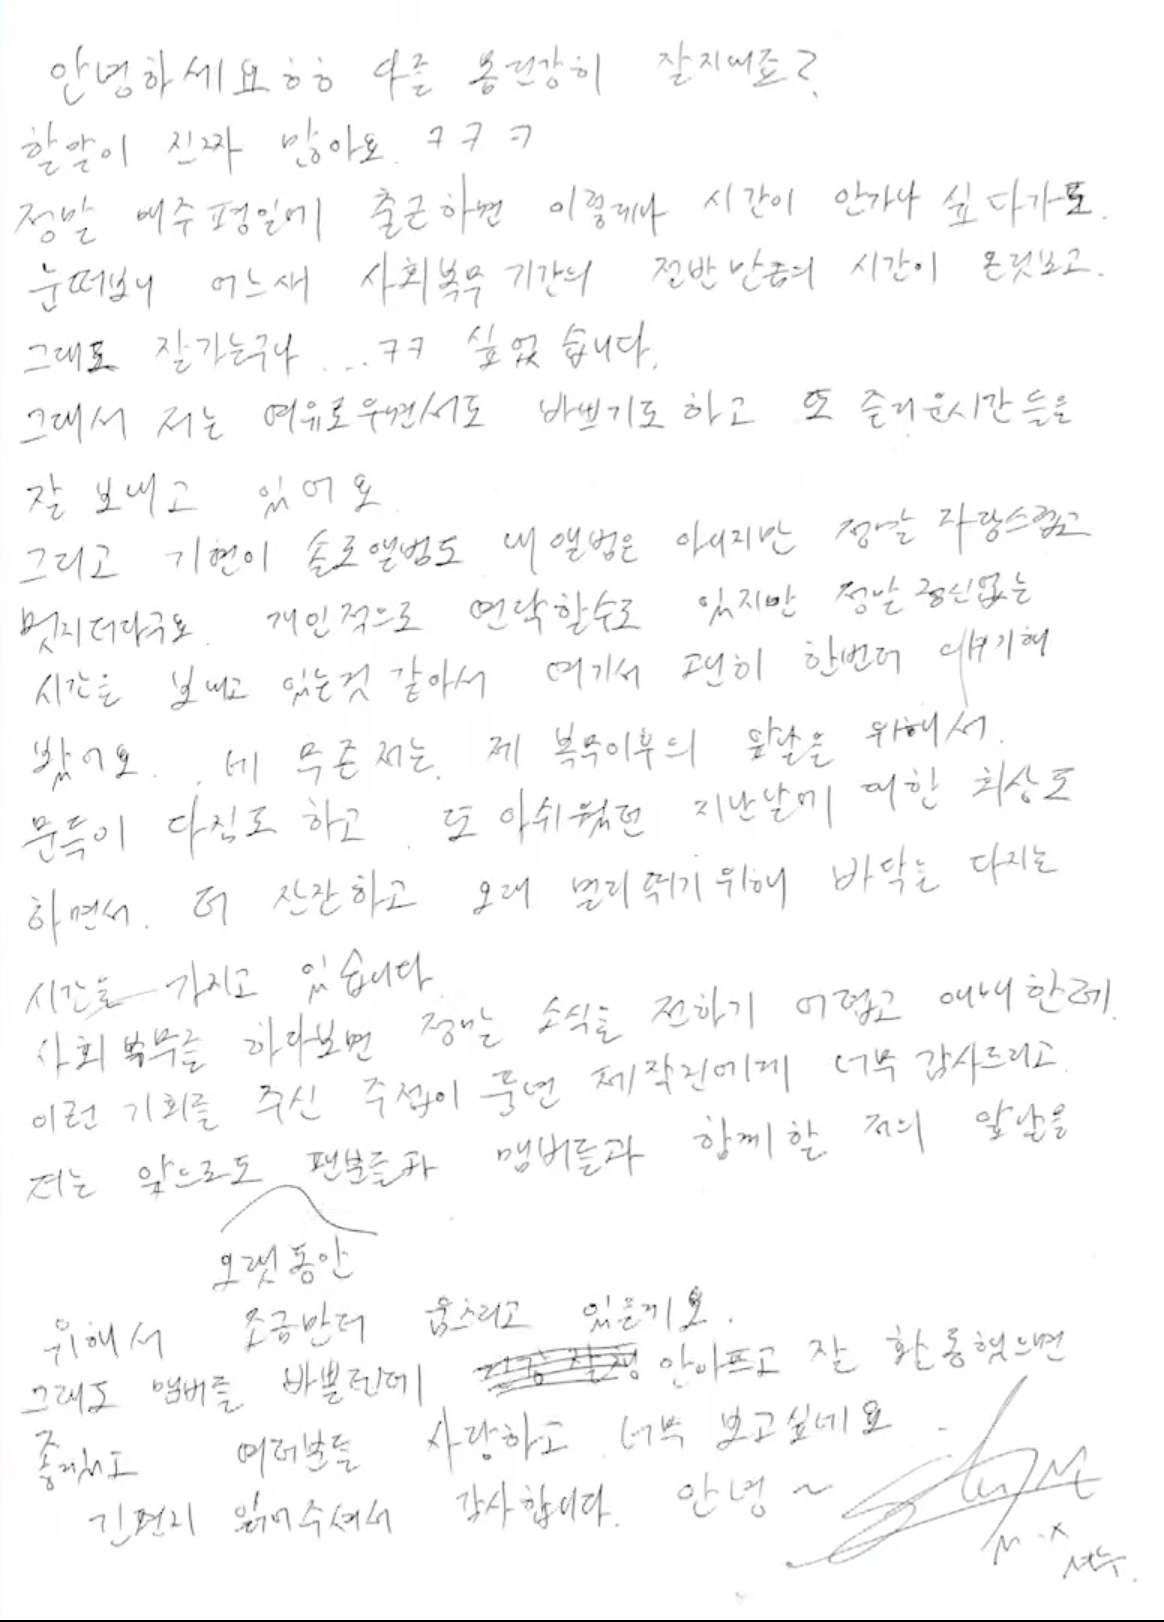 안녕하세요ㅎㅎ 다들 몸건강히 잘지내죠?
할말이 진짜 많아요. ㅋㅋㅋ
정말 매주평일에 출근하면 이렇게나 시간이 안가나 싶다가도.
눈떠보니 어느새 사회복무기간의 절반만큼의 시간이 온것보고.
그래도 잘가는구나 ...ㅋㅋ 싶었습니다.
그래서 저는 여유로우면서도 바쁘기도하고 또 즐거운시간들을
잘 보내고 있어요.
그리고 기현이 솔로앨범도 내앨범은 아니지만 정말 자랑스럽고
멋지더라구요. 개인적으로 연락할수도 있지만 정말 정신없는
시간을 보내고 있는것 같아서 여기서 괜히 한번더 얘기해
봤어요. 네 무튼 저는. 제 복무이후의 앞날을 위해서.
문득이 다짐도 하고. 또 아쉬웠던 지난날에 대한 회상도
하면서. 더 잔잔하고 오래 멀리뛰기위해 바닥을 다지는
시간을 가지고 있습니다.
사회복무를 하다보면 정말 소식을 전하기 어렵고 애매한데.
이런 기회를 주신 주접이 풍년 제작진에게 너무 감사드리고.
저는 앞으로도 팬분들과 멤버들과 함께할 저의 앞날을
오랫동안
위해서 조금만더 움츠리고 있을게요.
그래도 멤버들 바쁠텐데 안아프고 잘 활동했으면
좋겠고 여러분들 사랑하고 너무 보고싶네요.
긴편지 읽어주셔서 감사합니다. 안녕~
M.X
셔누.